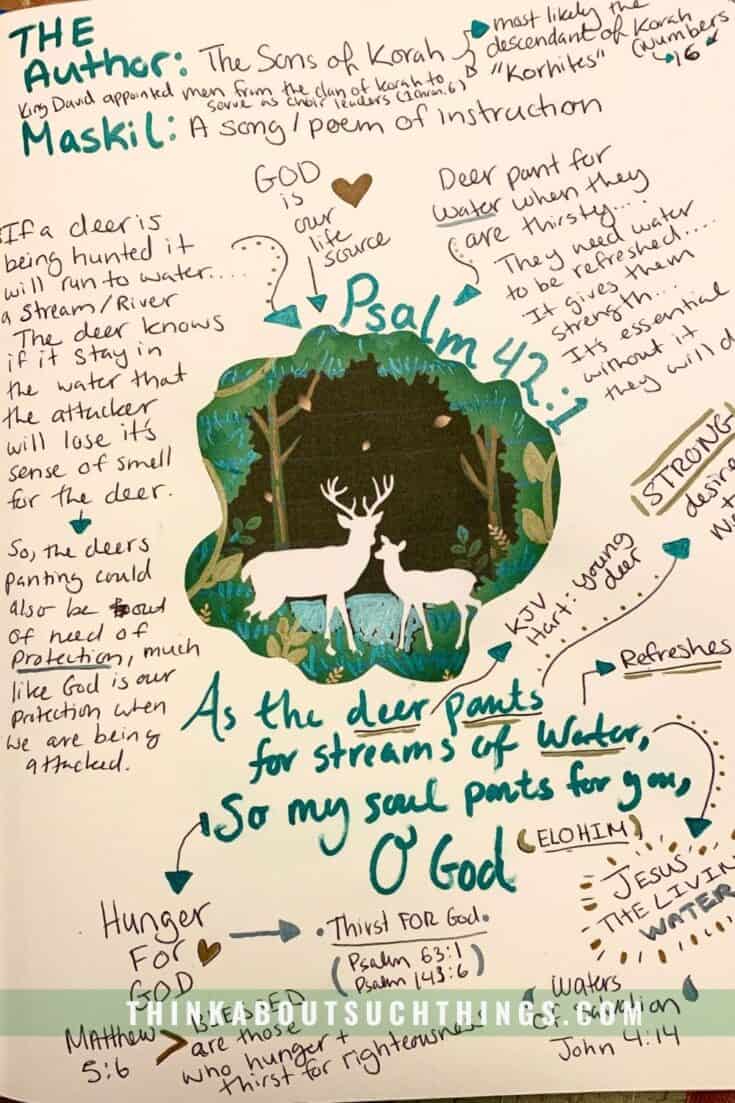 THE
Author: The Sons of Korah
most likely the
descendant of Korah
"Korhites"
(Numbers
16
King David appointed men from the clan of Korah to
serve as choir leaders
Maskil: A song/poem of instruction
GOD
is
our
life
source
Deer pant for
water when they
are thirsty...
They need water
to be refreshed....
It gives them
strength...
It's essential
without it
they will d
If a deer is
being hunted it
will run to water....
a Stream/River
The deer knows
if it stay in
the water that
the attacker
will lose it's
sense of smell
for the deer.
So, the deers
panting could
also be out
of need of
Protection, much
like God is our
protection when
we are being
attacked.
Psalm 42:1
STRONG
desire
KJV
Hart: young
deer
Refreshes
As the deer pants
for streams of Water,
So my soul pants for you,
O God
(ELOHIM)
JESUS
THE LIVIN
WATER
Hunger
FOR
GOD
Thirst FOR God.
(Psalm 63:1
Psalm 143:6)
Matthew
5:6
> BLESSED
are those
who hunger +
thirst for righteousness
Waters
of Salvation
John 4:14
THINKABOUTSUCHTHINGS.COM